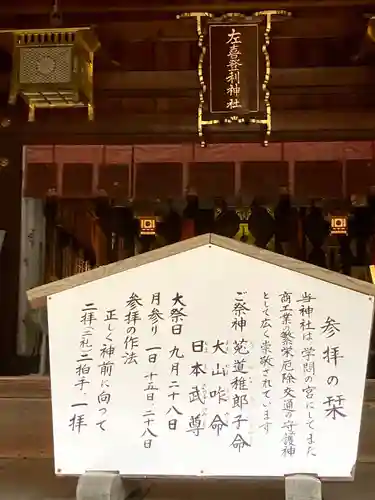 左喜登利神社
参拝の栞
当神社は学問の宮にしてまた
商工業の繁栄厄除交通の守護神
として広く崇敬されています
ご祭神 菟道稚郎子命
大山咋命
日本武尊
大祭日 九月二十八日
月参り 一日・十五日・二十八日
参拝の作法
正しく神前に向つて
二拝(二礼)二拍手・一拝